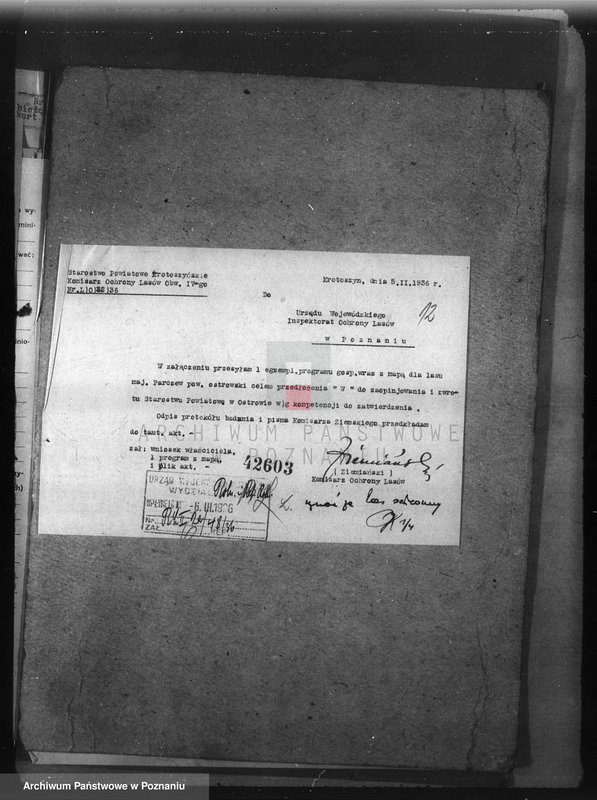 Starostwo Powiatowe Krotoszyńskie
Komisarz Ochrony Lasów Obw. IV-go
Nr.L)O)32)36
Krotoszyn, dnia 5.II.1936 r.
12
Do
Urzędu Wojewódzkiego
Inspektorat Ochrony Lasów
w Poznaniu
W załączeniu przesyłam 1 egzempl.programu gosp.wraz z mapą dla lasu
maj. Parczew pow. ostrowski celem przedłożenia " W " do zaopinjowania i zwro-
tu Starostwu Powiatową w Ostrowie w)g kompetencji do zatwierdzenia .
Odpis protokółu badania i pisma Komisarza Ziemskiego przedkładam
do tamt. akt. -
zał: wniosek właściciela,
1 program z mapą,
i plik akt. -
42603
( Ziemiański )
Komisarz Ochrony Lasów
URZĄD
WYDZIAŁ
WPŁYNĘŁO - 6.III.1936
Nr.
ZAŁ.
ARCHIWUM PAŃSTWOWE
W POZNANIU
Archiwum Państwowe w Poznaniu